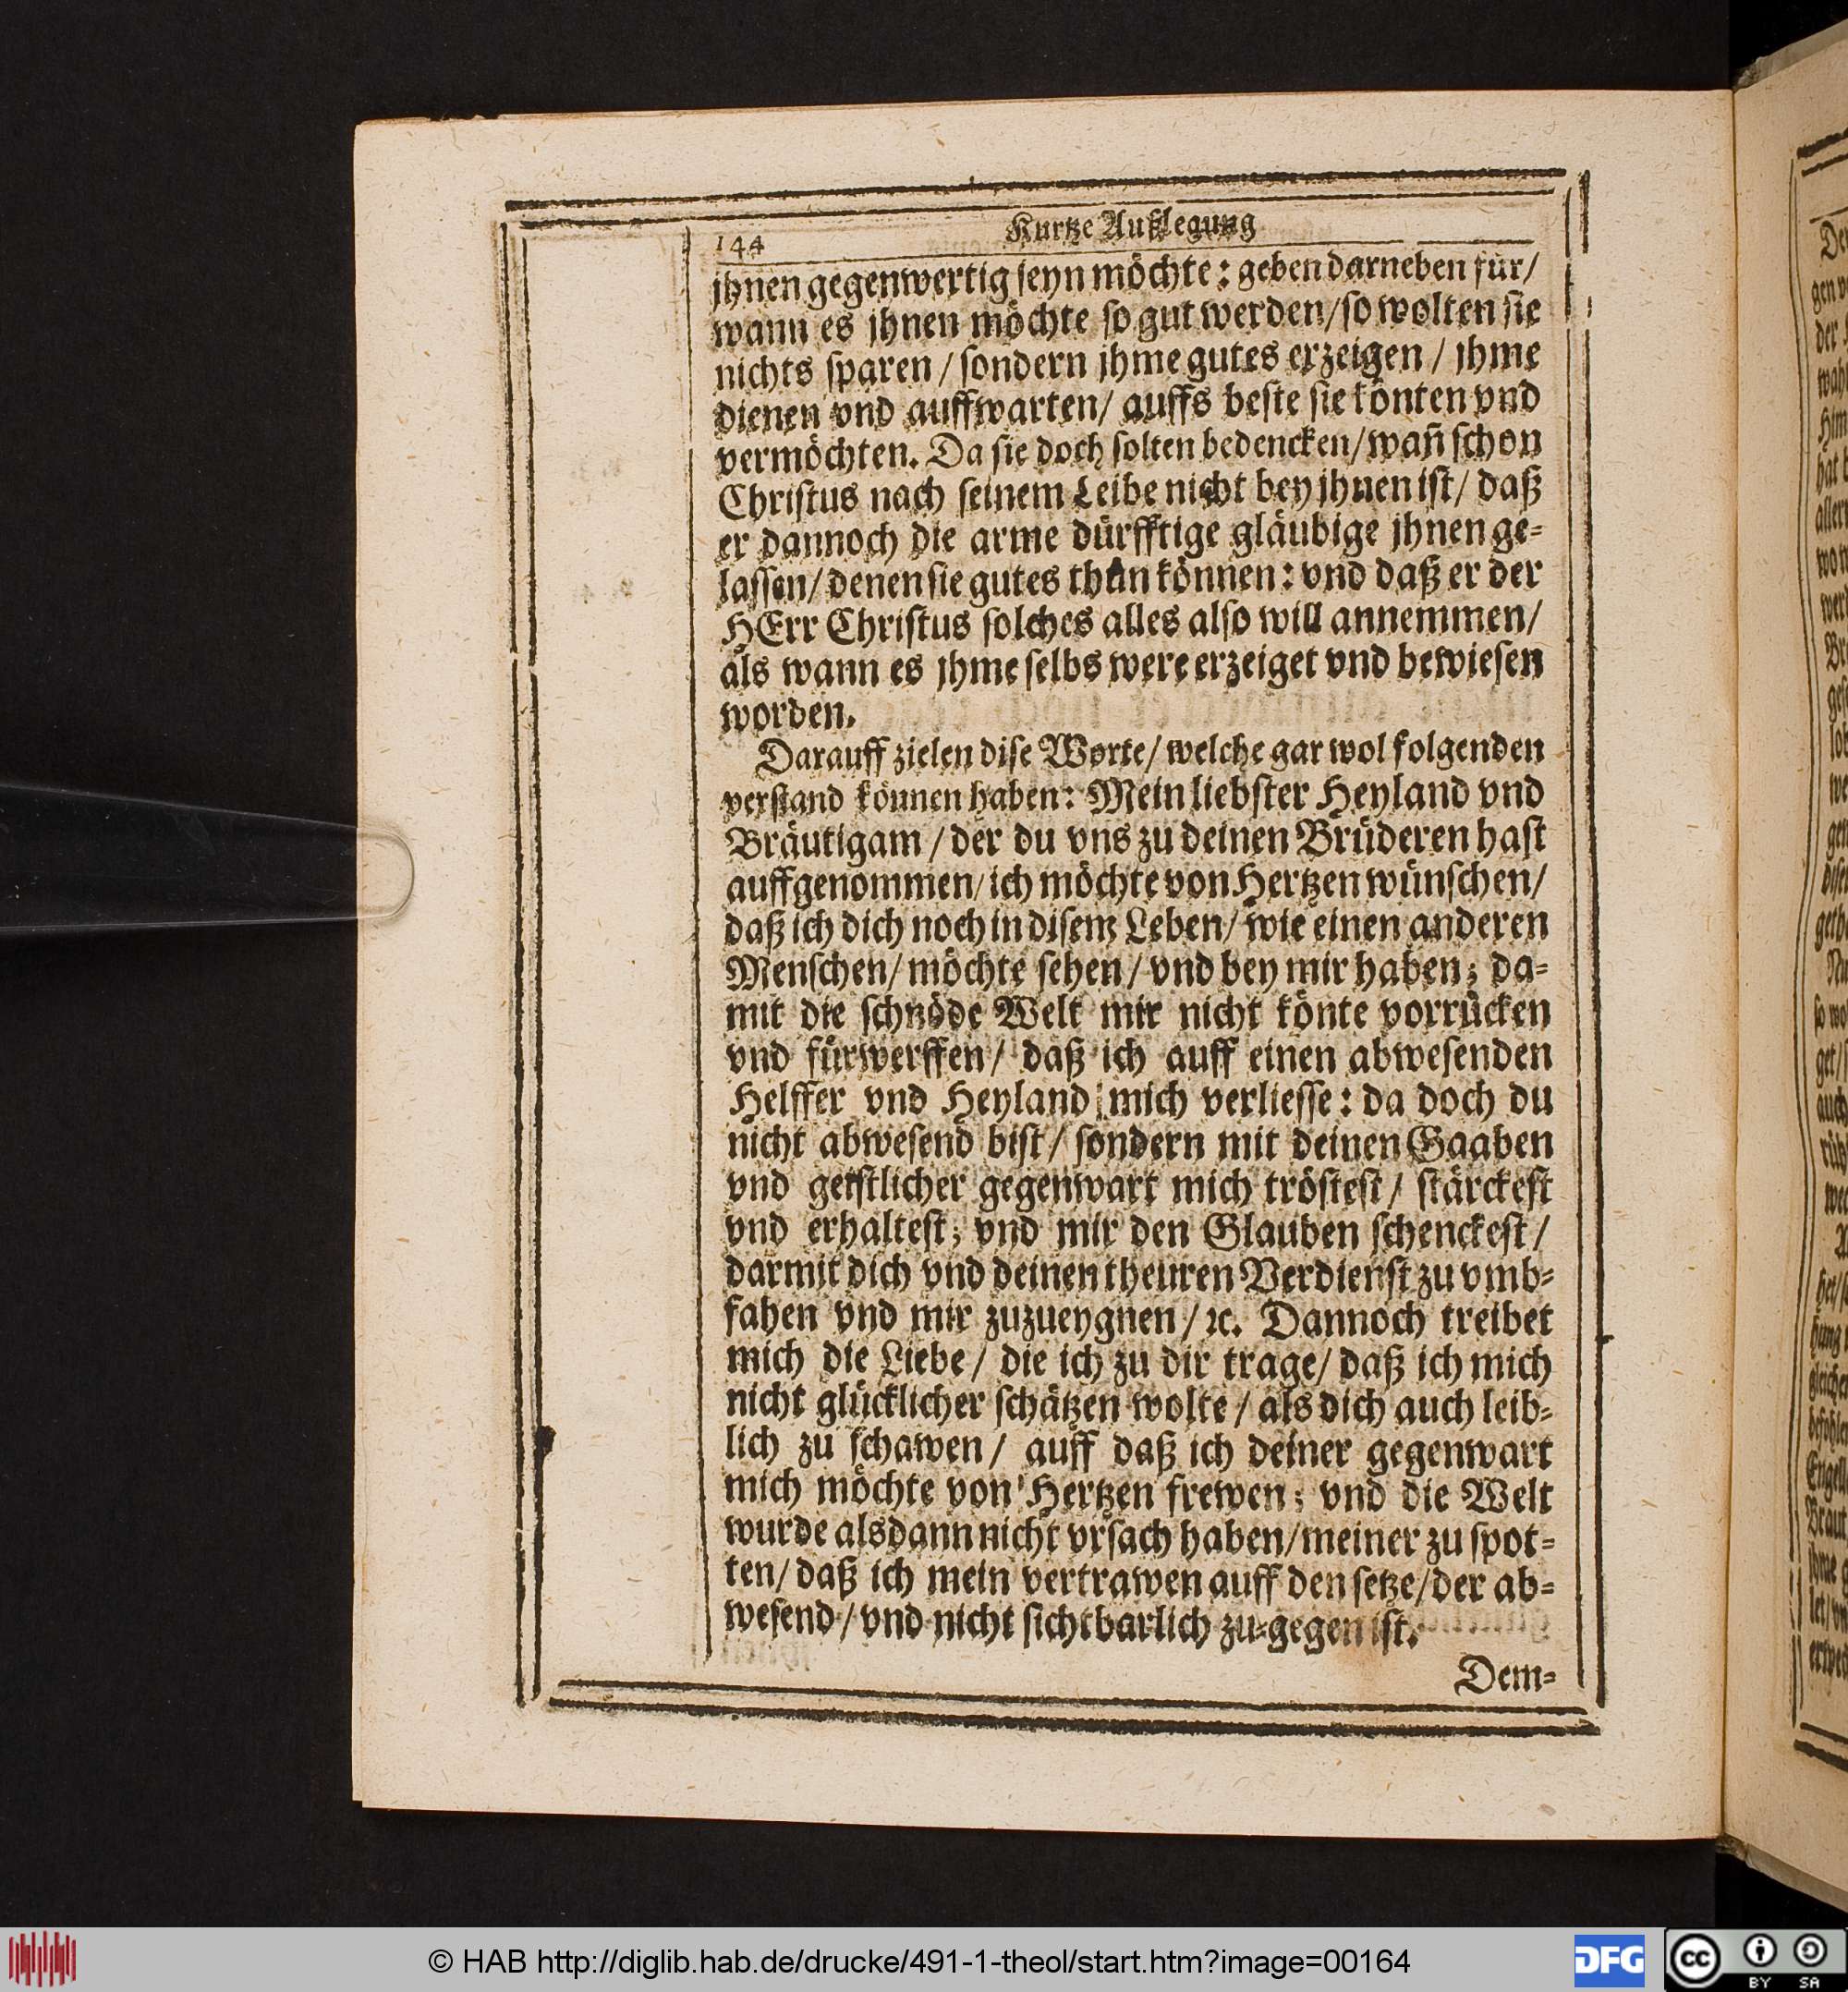 144 Kurtze Außlegung
jhnen gegenwertig seyn möchte: geben darneben für/
wann es jhnen möchte so gut werden/ so wolten sie
nichts sparen / sondern jhme gutes erzeigen / jhme
dienen vnd auffwarten/ auffs beste sie könten vnd
vermöchten. Da sie doch solten bedencken/ wañ schon
Christus nach seinem Leibe nicht bey jhnen ist/ daß
er dannoch die arme dürfftige gläubige jhnen ge-
lassen/ denen sie gutes thůn können: vnd daß er der
HErr Christus solches alles also will annemmen/
als wann es jhme selbs were erzeiget vnd bewiesen
worden.
Darauff zielen dise Worte/ welche gar wol folgenden
verstand können haben: Mein liebster Heyland vnd
Bräutigam / der du vns zu deinen Brüderen hast
auffgenommen/ ich möchte von Hertzen wünschen/
daß ich dich noch in disem Leben/ wie einen anderen
Menschen/ möchte sehen / vnd bey mir haben; da-
mit die schnöde Welt mir nicht könte vorrücken
vnd fürwerffen/ daß ich auff einen abwesenden
Helffer vnd Heyland mich verliesse: da doch du
nicht abwesend bist / sondern mit deinen Gaaben
vnd geistlicher gegenwart mich tröstest / stärckest
vnd erhaltest; vnd mir den Glauben schenckest /
darmit dich vnd deinen theuren Verdienst zu vmb-
fahen vnd mir zuzueygnen / ꝛc. Dannoch treibet
mich die Liebe / die ich zu dir trage/ daß ich mich
nicht glücklicher schätzen wolte / als dich auch leib-
lich zu schawen / auff daß ich deiner gegenwart
mich möchte von Hertzen frewen; vnd die Welt
wurde alsdann nicht vrsach haben/ meiner zu spot-
ten/ daß ich mein vertrawen auff den setze/ der ab-
wesend / vnd nicht sichtbarlich zu-gegen ist.
Dem-
© HAB http://diglib.hab.de/drucke/491-1-theol/start.htm?image=00164
DFG
cc BY SA